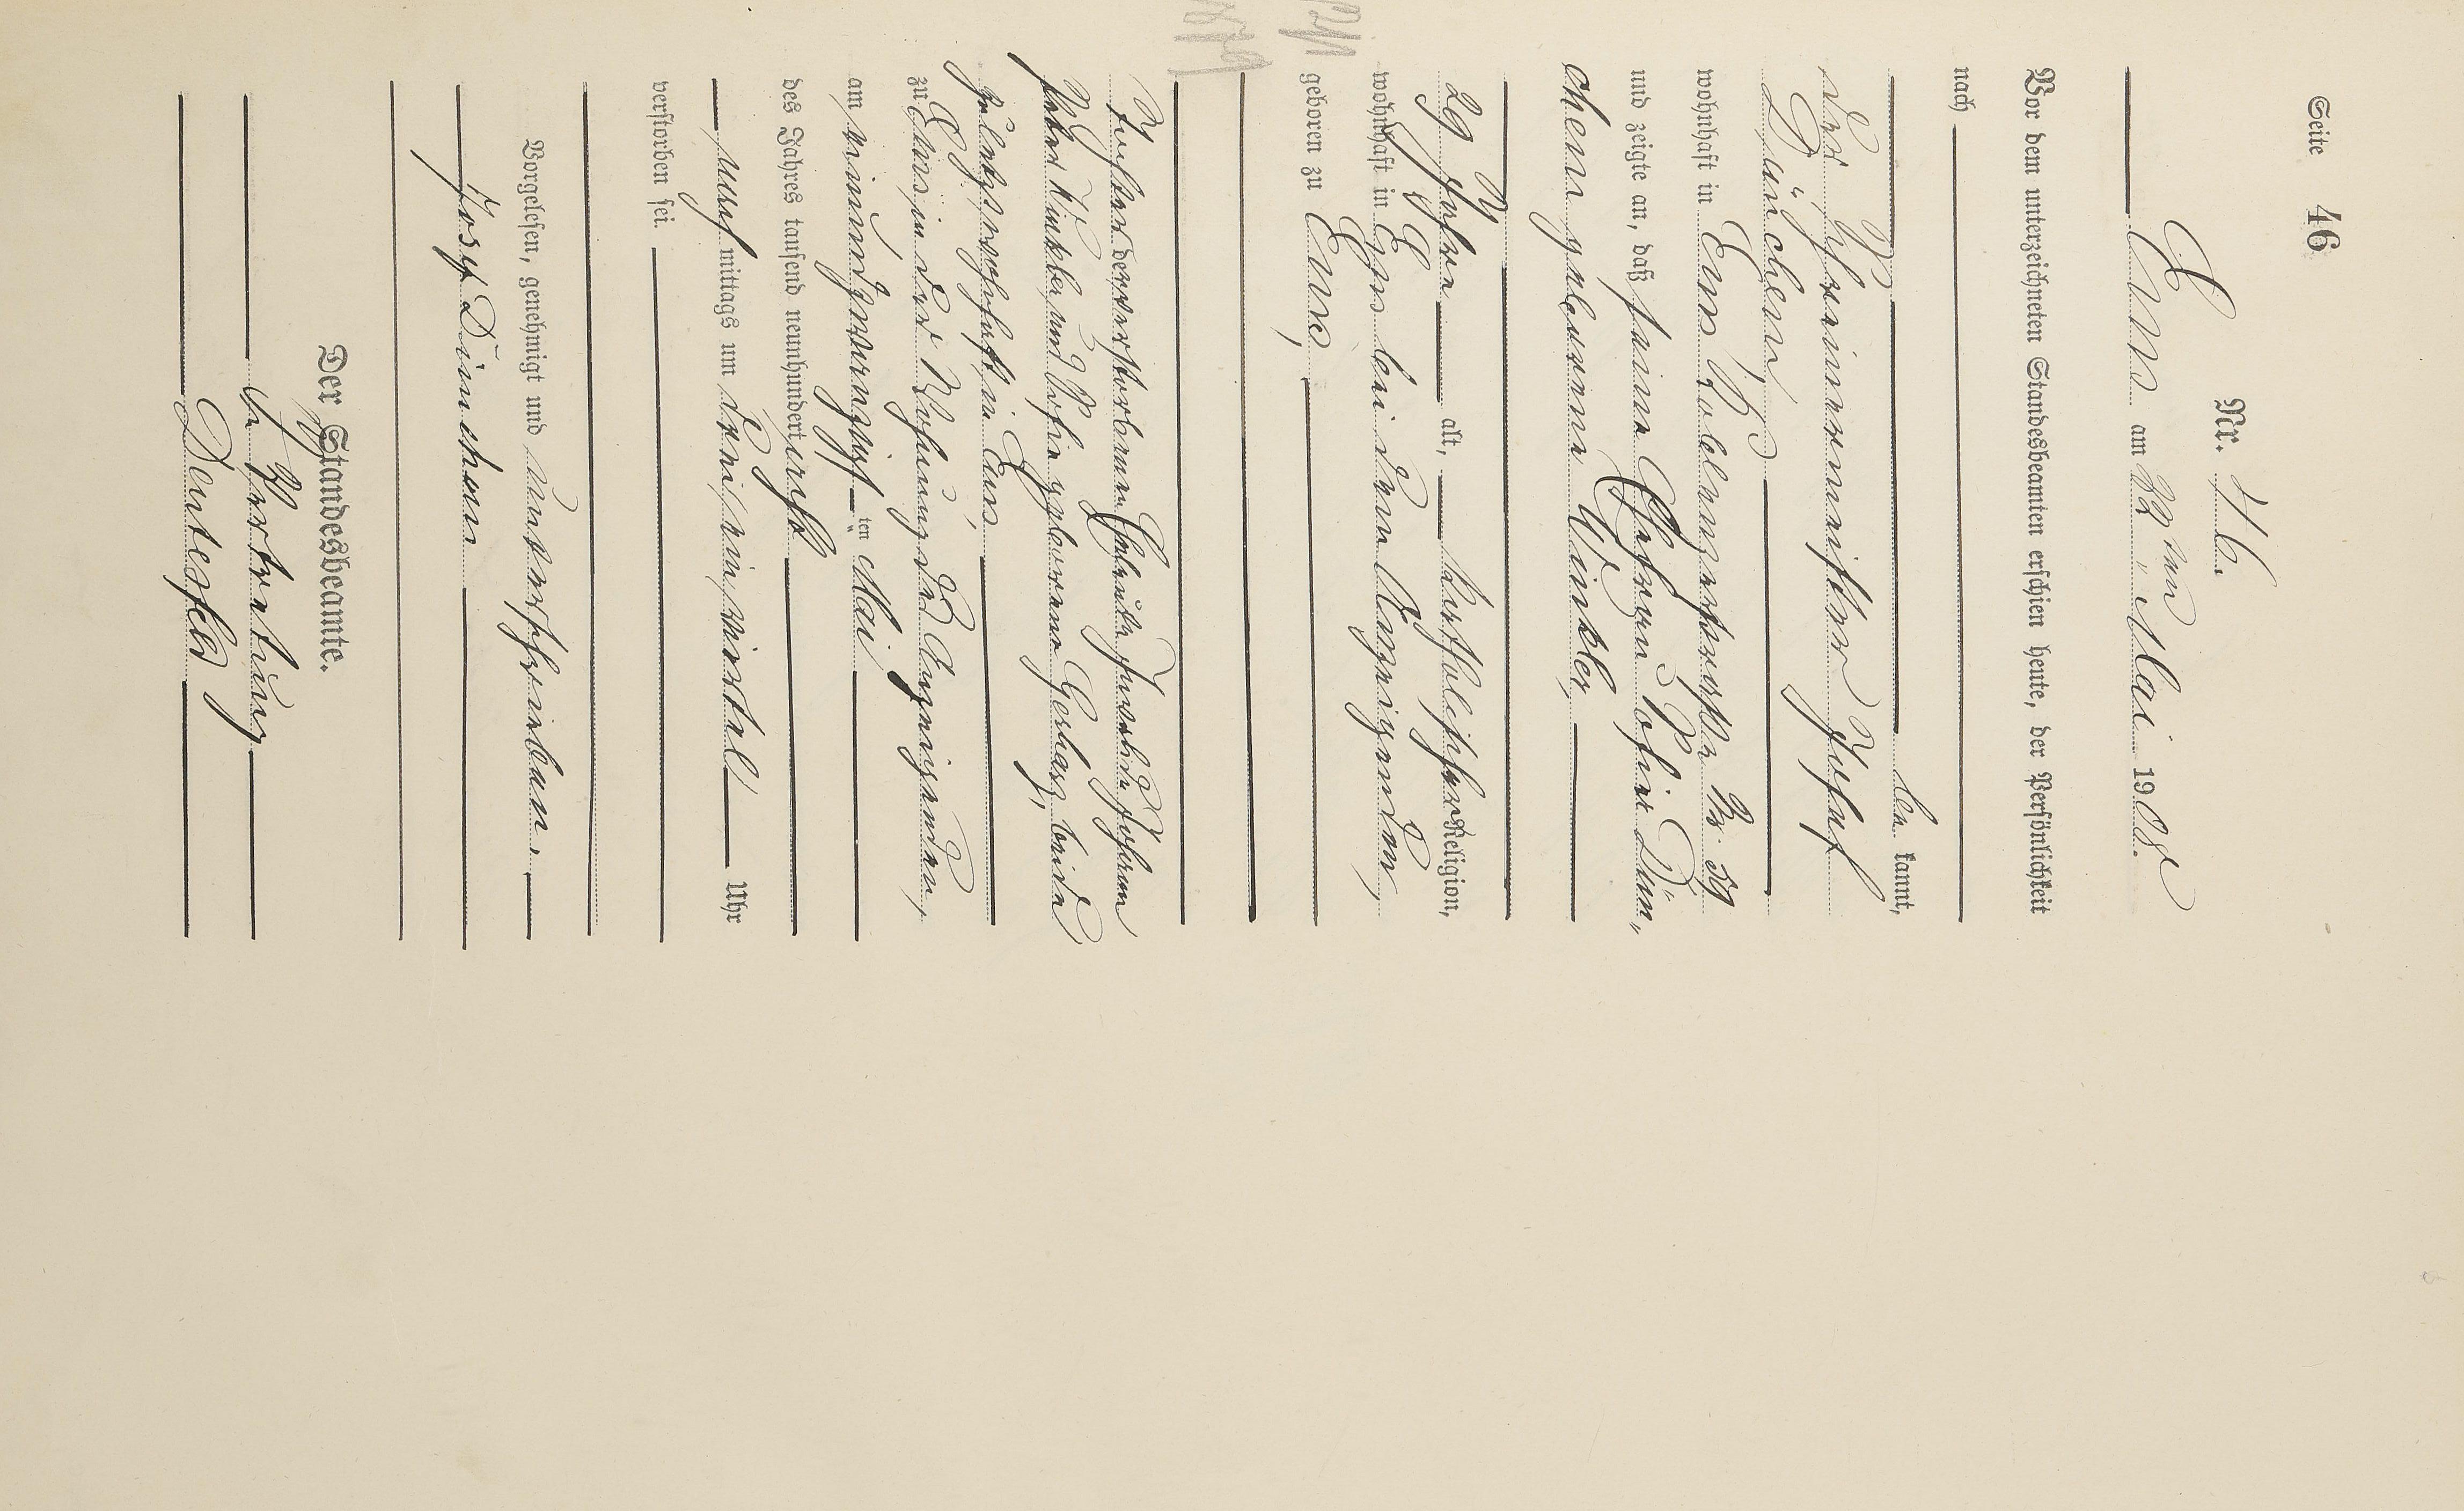 Seite 46
Nr. 46.
Ems am 22ten Mai 1908.
Vor dem unterzeichneten Standesbeamten erschien heute, der Persönlichkeit
nach
be kannt,
der Schreinermeister Josef
Dünchem
wohnhaft in Ems, Coblenzerstraße Nr. 59
und zeigte an, daß seine Ehefrau Sofie Dün„
chem geborene Winkler,
29 Jahre alt, katholischer Religion,
wohnhaft in Ems bei dem Anzeigenden,
geboren zu Ems,
Tochter der verstorbenen Eheleute
Peter Winkler und Sofie geborene Gerharz, beide
zuletzt wohnhaft in Ems,
zu Ems in der Wohnung des Anzeigenden,
am einundzwanzigsten Mai
des Jahres tausend neunhundert acht
nach mittags um drei ein viertel Uhr
verstorben sei.
Vorgelesen, genehmigt und unterschrieben.
Josef Dünchem
Der Standesbeamte.
In Vertretung